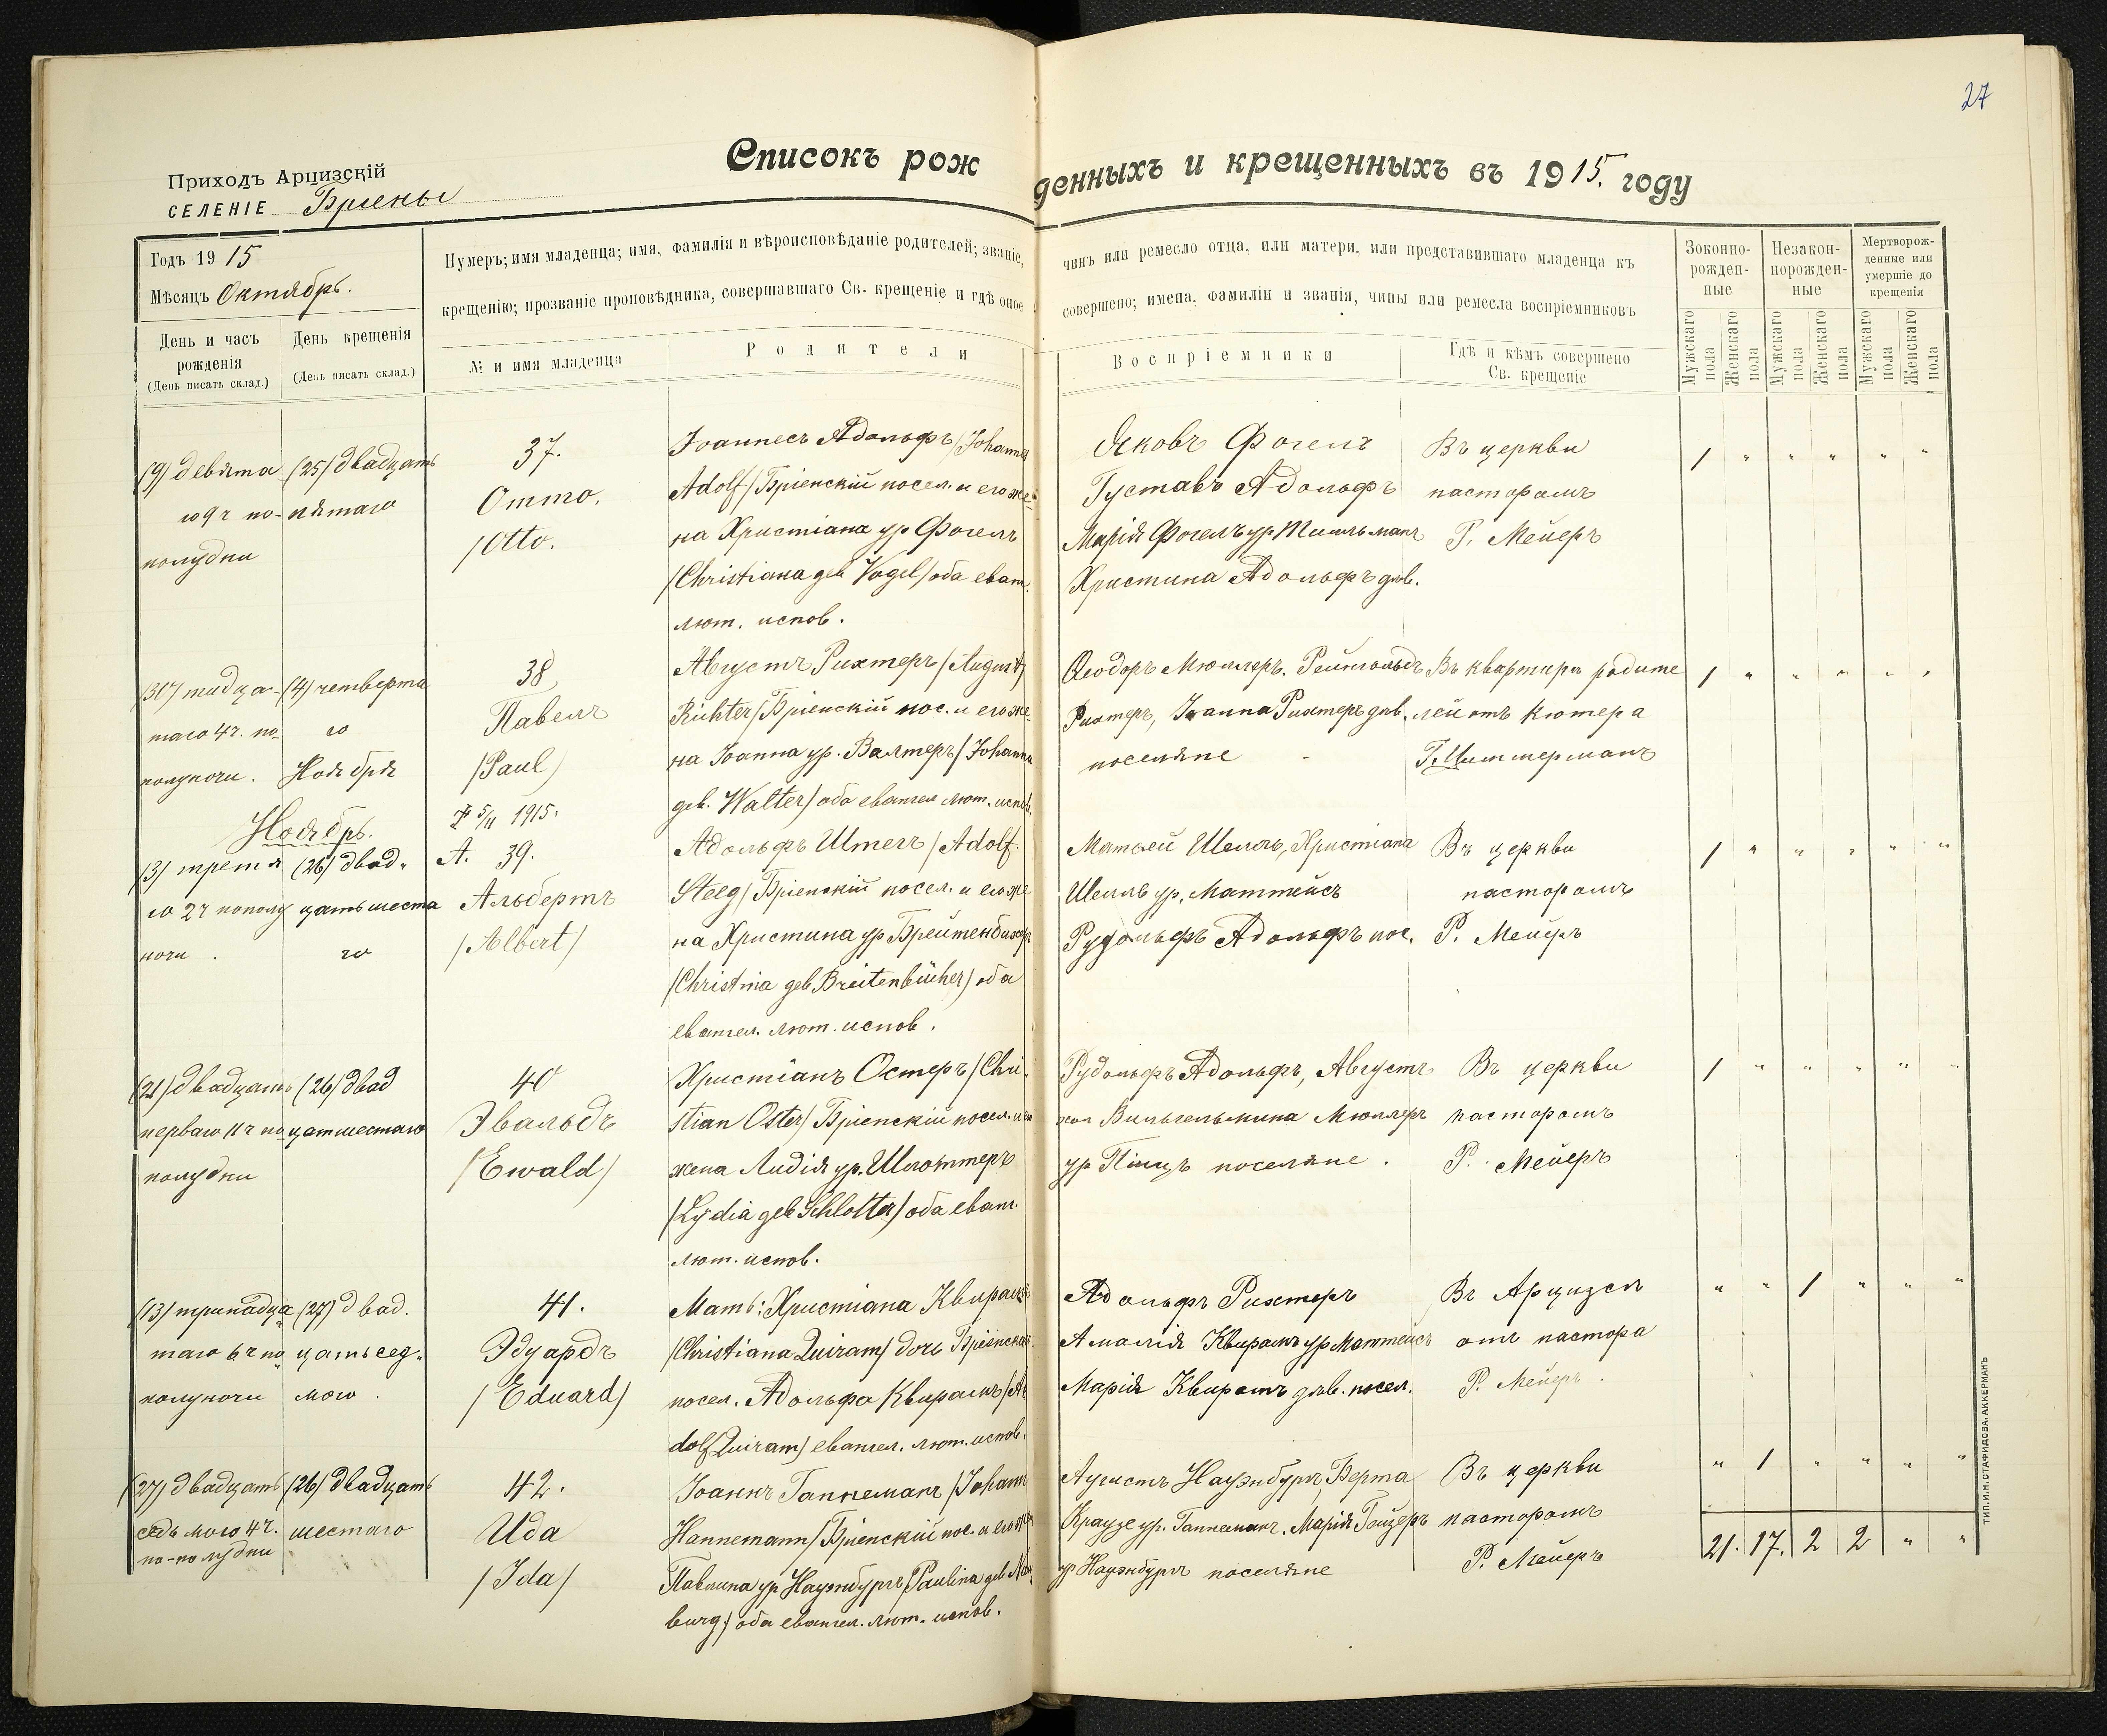 27
Приходъ Арцизскій
СЕЛЕНІЕ Бріены
Списокъ рожденныхъ и крещенныхъ въ 1915. году
Годъ 1915
Мѣсяцъ Октябрь.
День и часъ рожденія
(День писать склад.)
День крещенія
(День писать склад.)
Нумеръ; имя младенца; имя, фамилія и вѣроисповѣданіе родителей; званіе, чинъ или ремесло отца, или матери, или представившаго младенца къ
крещенію; прозваніе проповѣдника, совершавшаго Св. крещеніе и гдѣ оное совершено; имена, фамиліи и званія, чины или ремесла воспріемниковъ
№ и имя младенца
Родители
Воспріемники
Гдѣ и кѣмъ совершено
Св. крещеніе
Зоконно-
рожден-
ные
Незакон-
норожден-
ные
Мертворож-
денные или
умершіе до
крещенія
Мужскаго пола
Женскаго пола
Мужскаго пола
Женскаго пола
Мужскаго пола
Женскаго пола
(9) девята
го 9 ч по-
полудни
(25) двадцать
пятаго
37.
Отто.
/Otto.
Іоаннесъ Адольфъ /Johannes
Adolf/ Бріенскій посел. и его же-
на Христіана ур Фогелъ
/Christiana geb Vogel/ оба еванг.
лют. испов.
Яковъ Фогелъ
Густавъ Адольфъ
Марія Фогелъ ур
Христина Адольфъ дѣв.
Въ церкви
пасторомъ
Р. Мейеръ
1 " " " " "
(30) тидца-
таго 4 ч. по
полуночи.
(4) четверта
го
Ноября
38
Павелъ
/Paul/
5/11 1915.
Августъ Рихтеръ /August
Richter/ Бріенскій пос. и его же-
на Іоанна ур. Валтеръ /Johanna
geb. Walter/ оба евангел лют. испов.
Ѳеодоръ Мюллеръ, Рейнгольдъ
Рихтеръ, Іоанна Рихтеръ дѣв.
поселяне
Въ квартирѣ родите
лей отъ кюстера
Г. Циммерманъ
1 " " " " "
Ноябрь.
(3) третя
го 2 ч пополу
ночи
(26) двад-
цать шеста
го
А. 39.
Альбертъ
/Albert/
Адольфъ Штегъ /Adolf
Steeg/ Бріенскій посел. и его же
на Христина ур Брейтенбихеръ
/Christina geb Breitenbücher/ оба
евангел. лют. испов.
Матѳей Шелль, Христіана
Шелль ур. Маттейсъ
Рудольфъ Адольфъ пос.
Въ церкви
пасторомъ
Р. Мейеръ
1 " " " " "
(21) двадцать
перваго 11 ч по
полудни
(26) двад
цатшестаго
40
Эвальдъ
/Ewald/
Христіанъ Остеръ /Chri-
stian Oster/ Бріенскій посел. и его
жена Лидія ур. Шлоттеръ
/Lydia geb Schlotter/ оба еванг.
лют. испов.
Рудольфъ Адольфъ, Августъ
Вильгельмина Мюллеръ
ур поселяне.
Въ церкви
пасторомъ
Р. Мейеръ
1 " " " " "
(13) тринадца
таго 6 ч по
полуночи
(27) двад.
цать сед-
мого.
41.
Эдуардъ
/Eduard/
Мать: Христіана Квирамъ
/Christiana Quiram/ дочь Бріенскаго
посел. Адольфа Квирамъ /A
dolf Quiram/ евангел. лют. испов.
Адольфъ Рихтеръ
Амалія Квирамъ ур Маттейсъ
Марія Квирамъ дѣв. посел.
Въ Арцизѣ
отъ пастора
Р. Мейеръ
" " 1 " " "
(27) двадцать
седьмого 4 ч.
по-полудни
(26) двадцать
шестаго
42.
Ида
/Ida/
Іоаннъ Ганнеманъ /Johann
Hannemann/ Бріенскій пос. и его жена
Павлина ур Науэнбургъ /Paulina geb Nau
burg/ оба евангел. лют. испов.
Аугустъ Науэнбургъ, Берта
Краузе ур. Ганнеманъ, Марія
ур Науэнбургъ поселяне
Въ церкви
пасторомъ
Р. Мейеръ
" 1 " " " "
21. 17. 2 2 " "
ТИП. И. Н. СТАФИДОВА, АККЕРМАНЪ